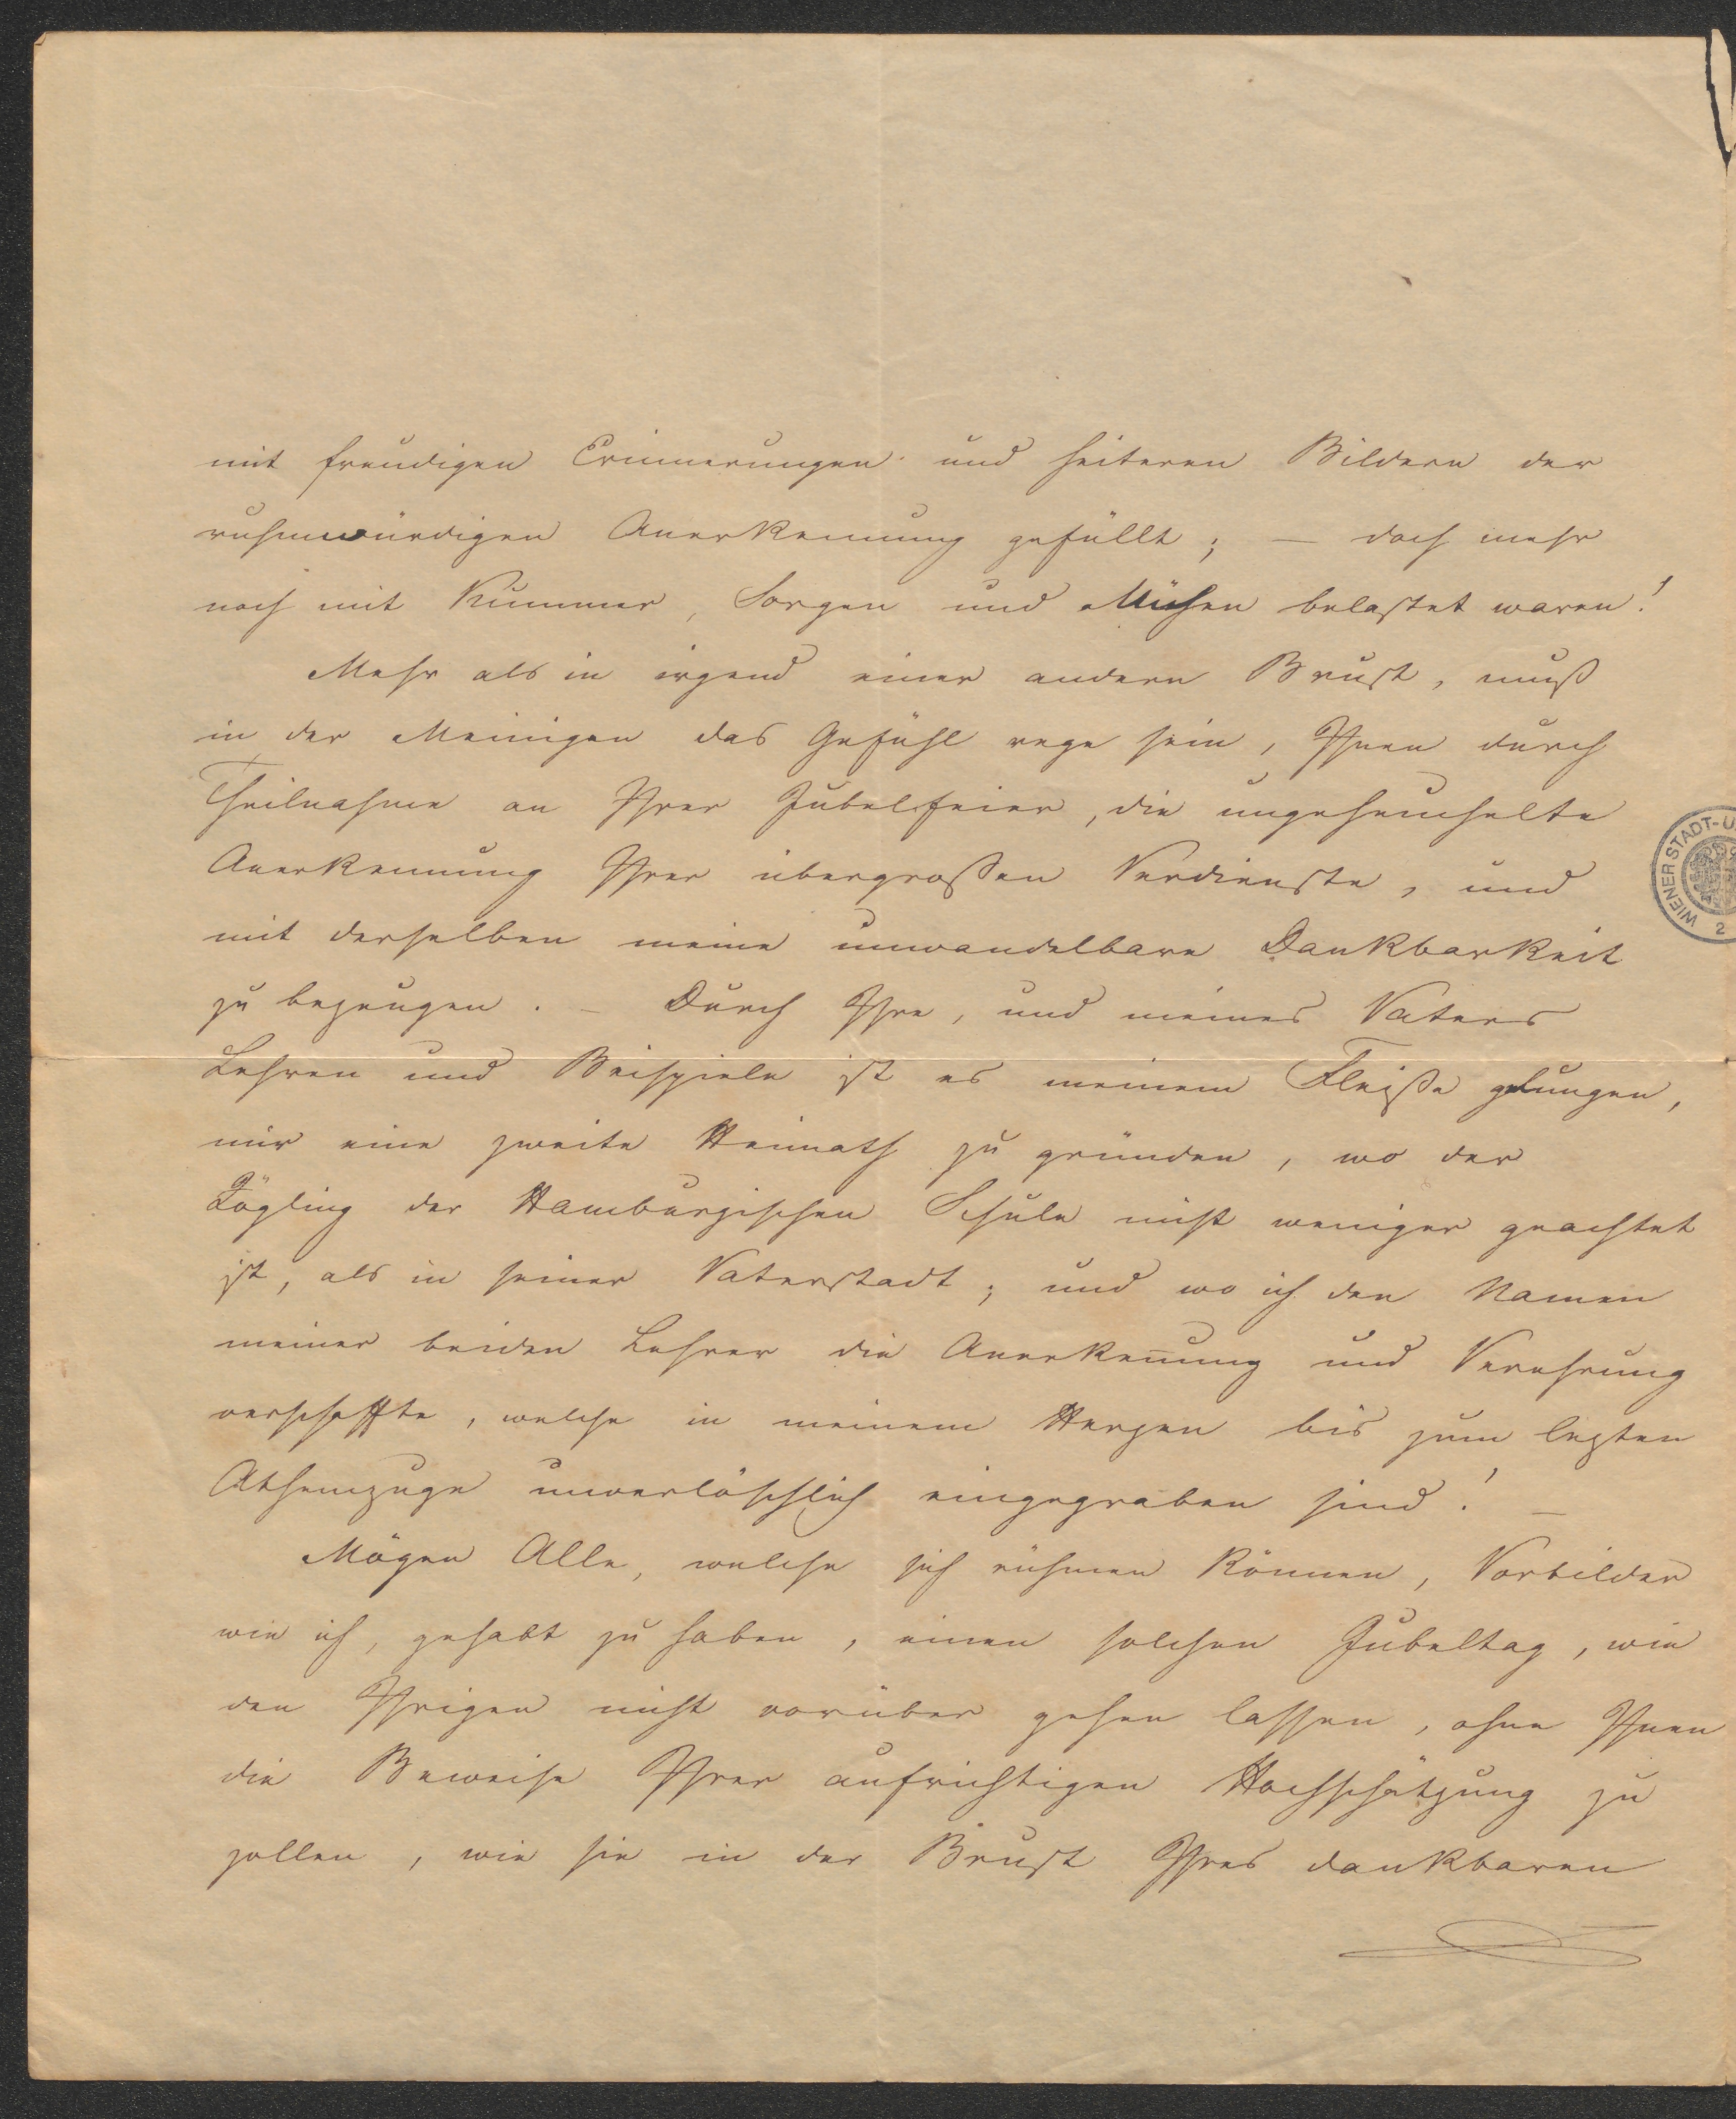 mit freudigen Erinnerungen und heiteren Bildern der
ruhmwürdigen Anerkennung gefüllt; — doch mehr
noch mit Kummer, Sorgen und Mühen belastet waren!
Mehr als in irgend einer andern Brust, muß
in der Meinigen das Gefühl rege sein, Ihnen durch
Theilnahme an Ihrer Jubelfeier, die ungeheuchelte
Anerkennung Ihrer übergroßen Verdienste, und
mit derselben meine unwandelbare Dankbarkeit
zu bezeugen. — Durch Ihre, und meines Vaters
Lehren und Beispiele ist es meinem Fleiße gelungen,
mir eine zweite Heimath zu gründen, wo der
Zögling der Hamburgischen Schule nicht weniger geachtet
ist, als in seiner Vaterstadt; und wo ich den Namen
meiner beiden Lehrer die Anerkennung und Verehrung
verschaffte, welche in meinem Herzen bis zum lezten
Athemzuge unverlöschlich eingegraben sind! —
Mögen Alle, welche sich rühmen können, Vorbilder
wie ich, gehabt zu haben, einen solchen Jubeltag, wie
den Ihrigen nicht vorüber gehen lassen, ohne Ihnen
die Beweise Ihrer aufrichtigen Hochschätzung zu
zollen, wie sie in der Brust Ihres dankbaren
WIENER STADT-U
2